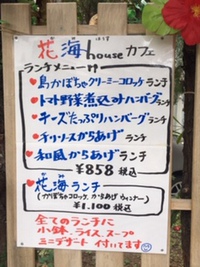 花海houseカフェ
はうす
ランチメニュー
島かぼちゃクリーミーコロッケランチ
トマト野菜煮込みハンバーグランチ
チーズたっぷりハンバーグランチ
チリソースからあげランチ
和風からあげランチ
¥858 税込
花海ランチ
(かぼちゃコロッケ、からあげ、ウィンナー)
¥1,100 税込
全てのランチに
小鉢、ライス、スープ
ミニデザート 付いてます